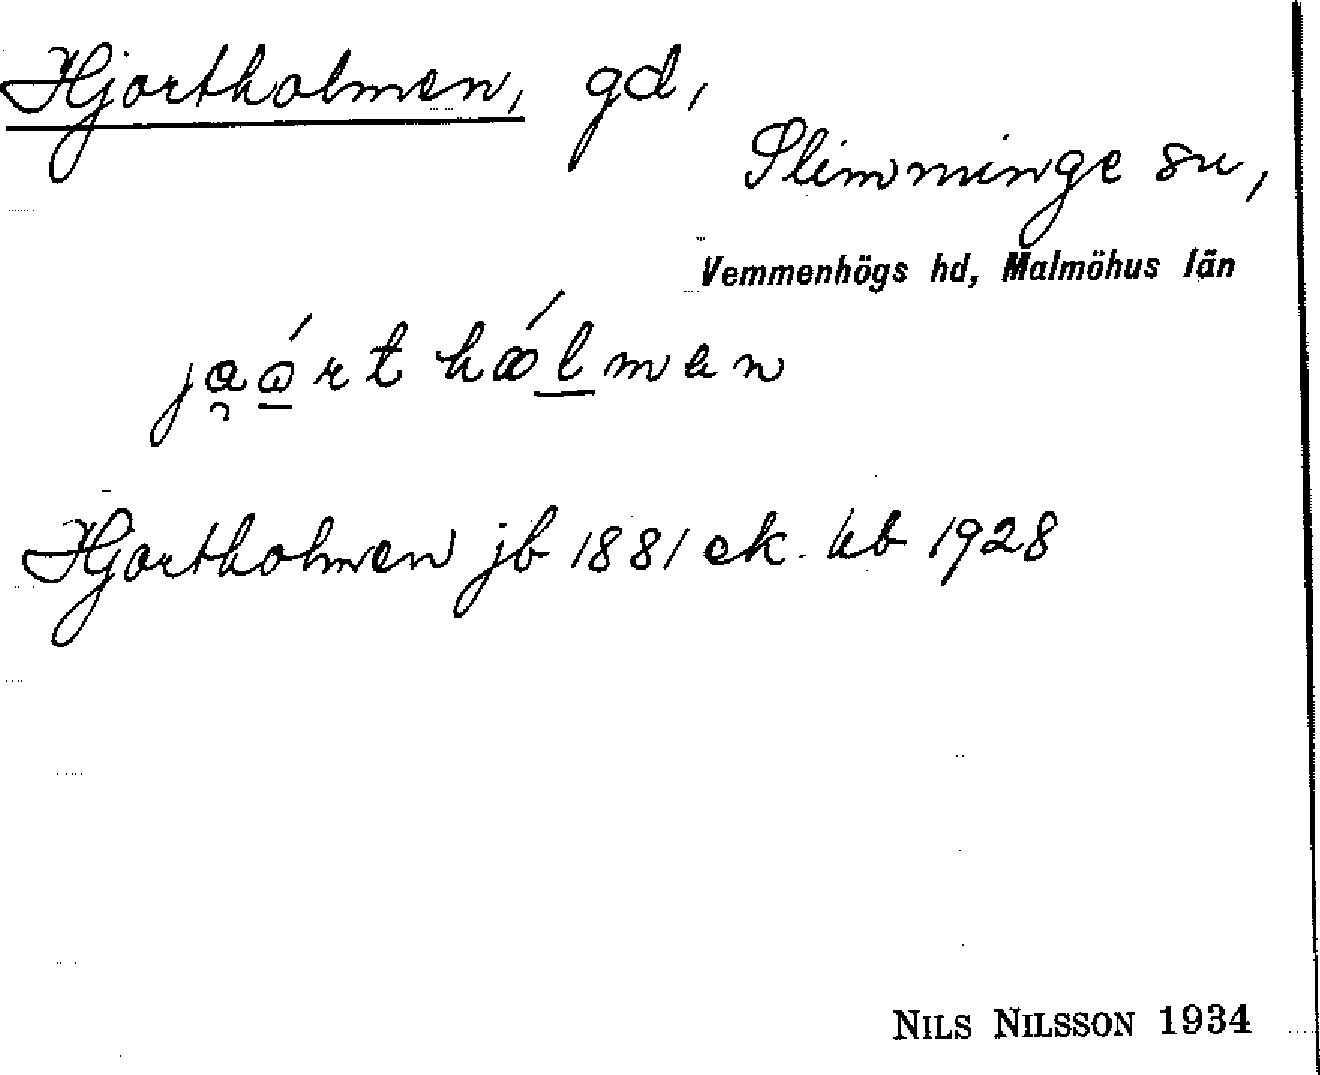 Hjortholmen, gd,
Slimminge sn,
Vemmenhögs hd, Malmöhus län
ja̯ǻrt hǻlmen
Hjortholmen jb 1881 ek. kb 1928
NILS NILSSON 1934